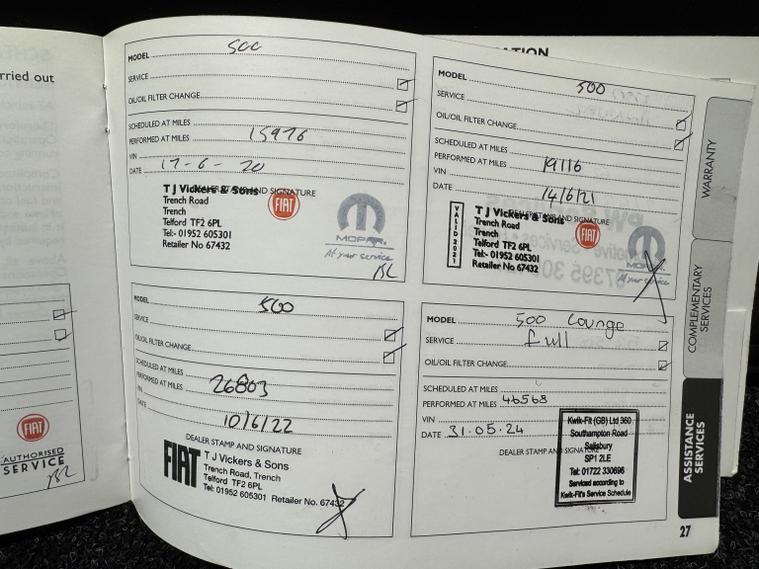 rried out
AUTHORISED
SERVICE
BL
MODEL 500
SERVICE
OIL/OIL FILTER CHANGE
SCHEDULED AT MILES
PERFORMED AT MILES 15976
VIN
DATE 17-6-20
DEALER STAMP AND SIGNATURE
T J Vickers & Sons
Trench Road
Trench
Telford TF2 6PL
Tel:- 01952 605301
Retailer No 67432
FIAT
MOPAR
At your service
BL
MODEL 500
SERVICE
OIL/OIL FILTER CHANGE
SCHEDULED AT MILES
PERFORMED AT MILES 19116
VIN
DATE 14/6/21
DEALER STAMP AND SIGNATURE
VALID 2021
T J Vickers & Sons
Trench Road
Trench
Telford TF2 6PL
Tel:- 01952 605301
Retailer No 67432
FIAT
MOPAR
At your service
MODEL 500
SERVICE
OIL/OIL FILTER CHANGE
SCHEDULED AT MILES
PERFORMED AT MILES 26803
VIN
DATE 10/6/22
DEALER STAMP AND SIGNATURE
FIAT
T J Vickers & Sons
Trench Road, Trench
Telford TF2 6PL
Tel: 01952 605301 Retailer No. 67432
MODEL 500 Lounge
SERVICE full
OIL/OIL FILTER CHANGE
SCHEDULED AT MILES
PERFORMED AT MILES 46568
VIN
DATE 31.05.24
DEALER STAMP AND SIGNATURE
Kwik-Fit (GB) Ltd 360
Southampton Road
Salisbury
SP1 2LE
Tel: 01722 330696
Serviced according to
Kwik-Fit's Service Schedule
WARRANTY
COMPLEMENTARY
SERVICES
ASSISTANCE
SERVICES
27
FIAT